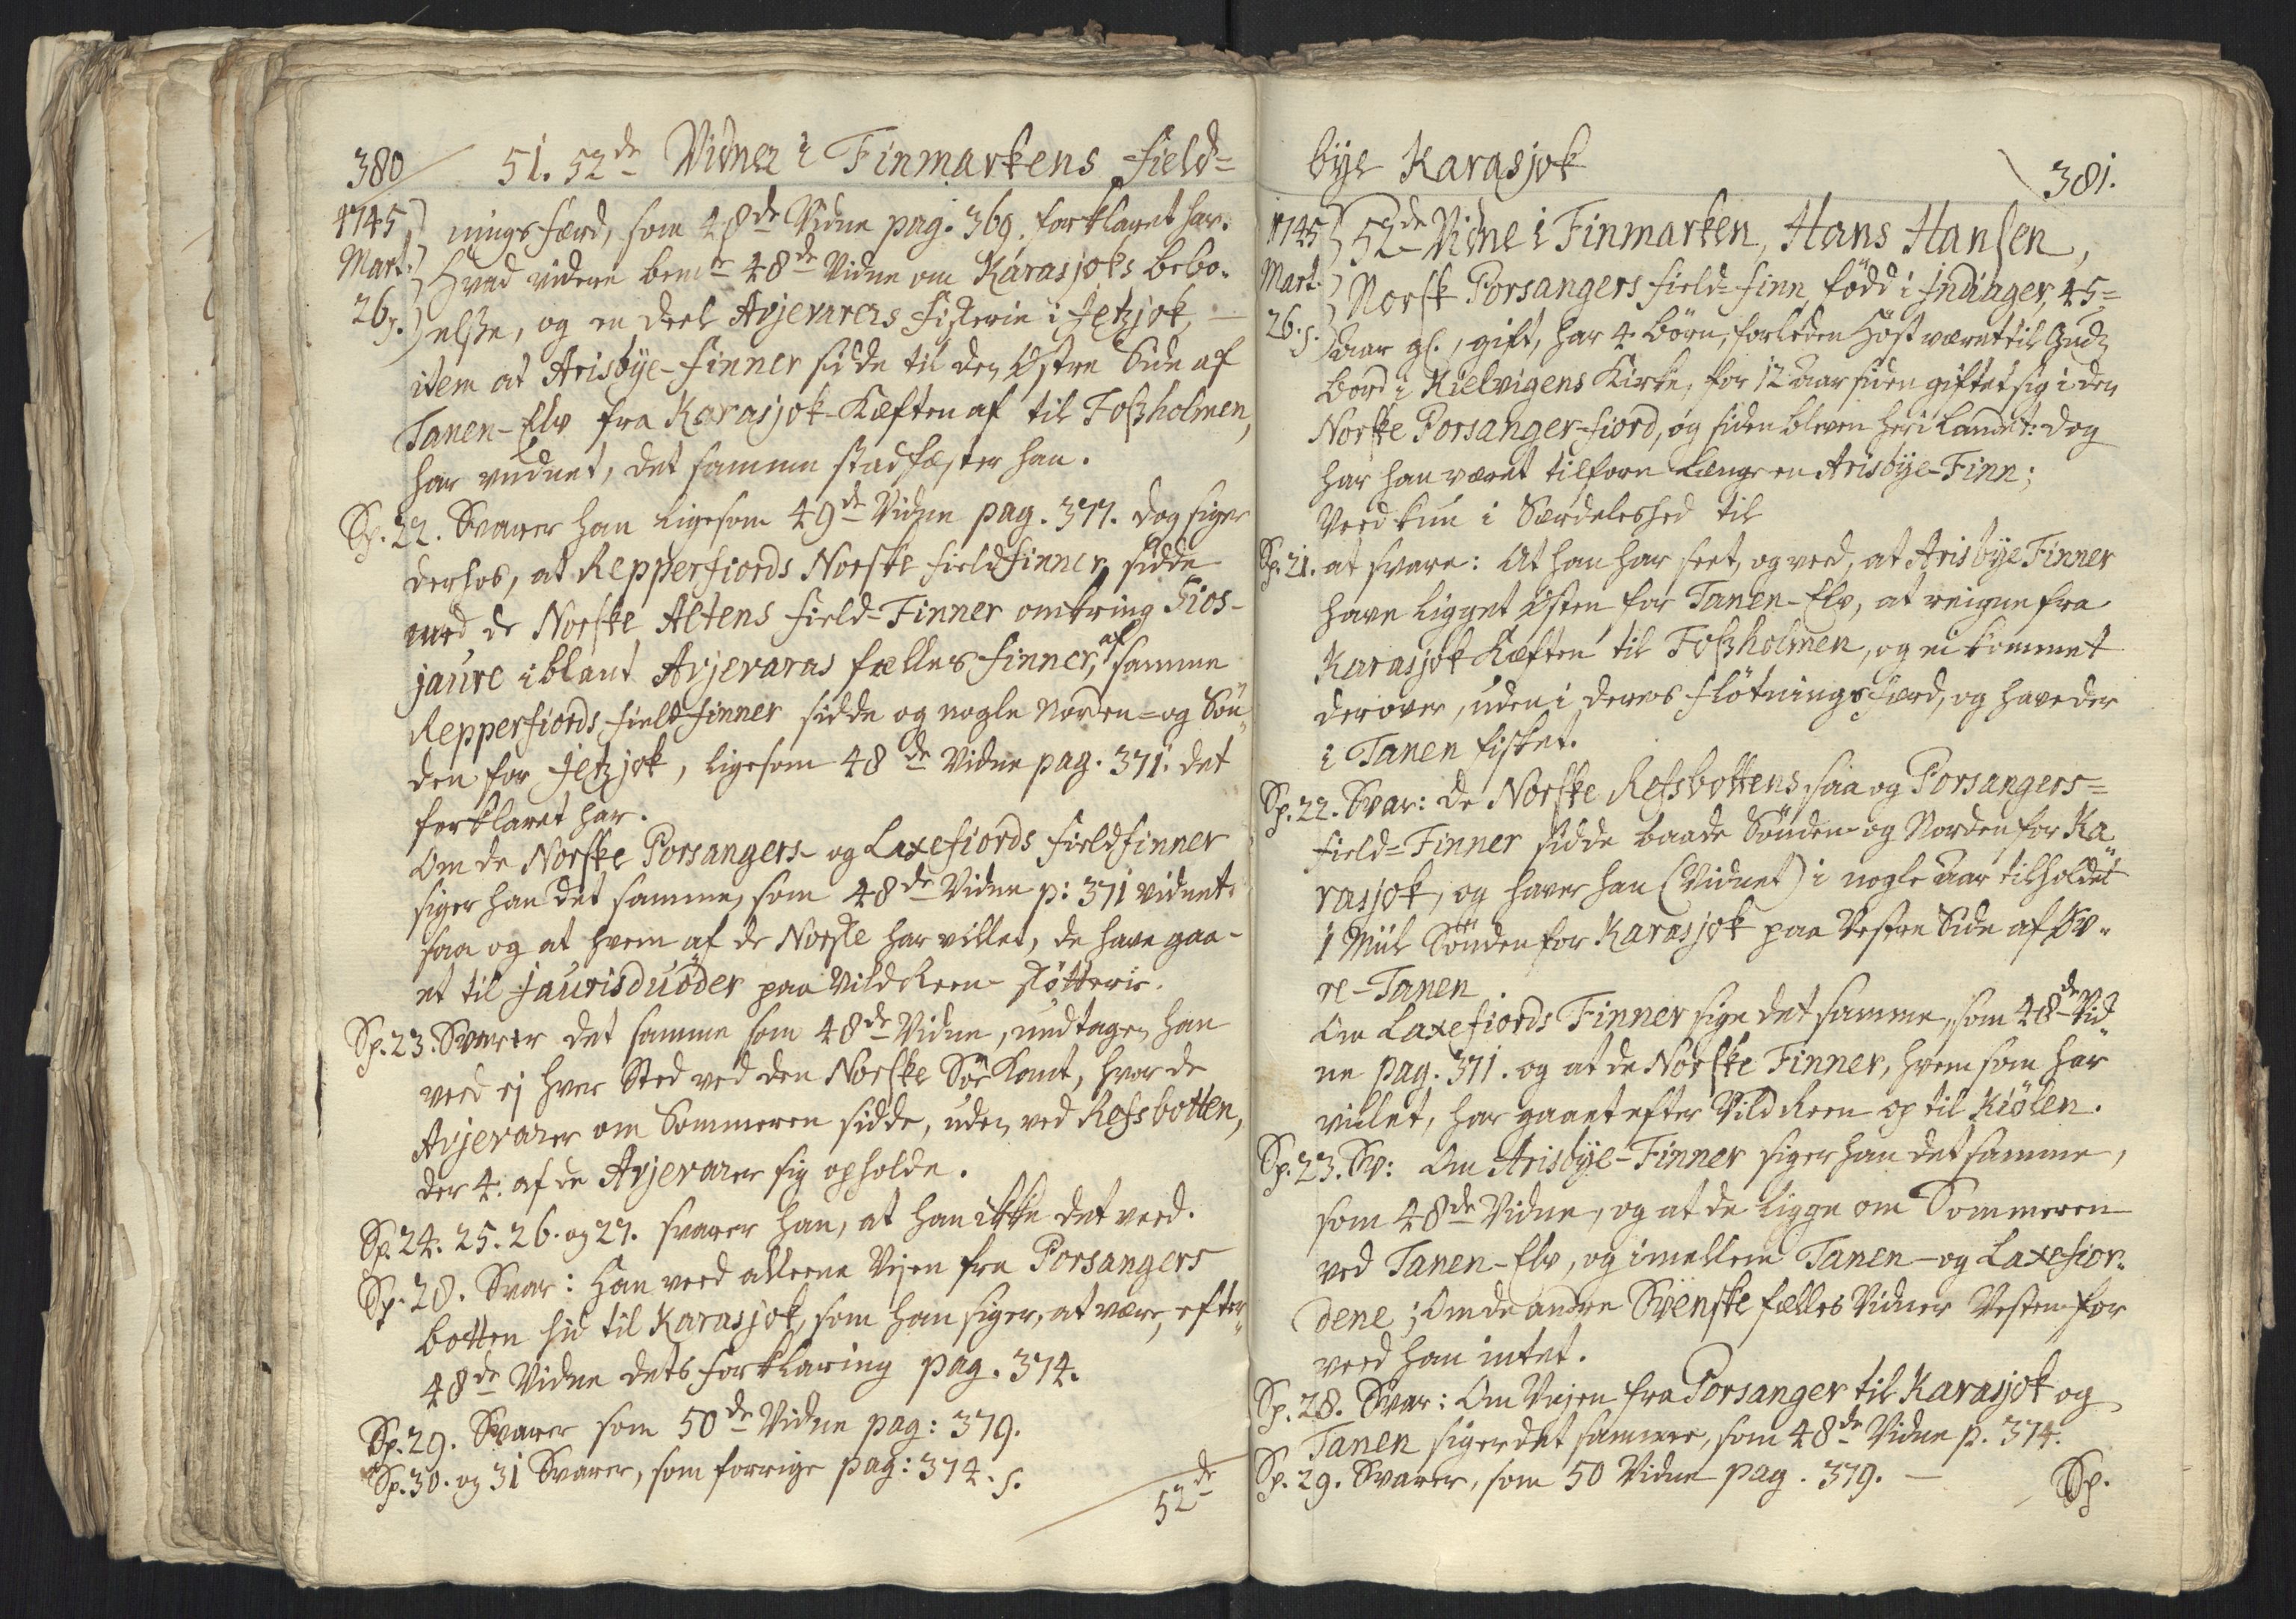 380
51. 52de Vidner i Finmarkens Field=
1745
Mart.
26.
nings færd, som 48de Vidne pag. 369. forklaret har.
Hvad videre bemte 48de Vidne om Karasjoks bebo-
elsse, og en deel Avjevarers Fiskerie i Jetzjok,
item at Arisbye-Finner sidde til den Østre Side af
Tanen-Elv fra Karasjok-Kæften af til Fossholmen,
har vudnet, det samme stadfæster han.
Sp. 22. Svarer han ligesom 49de Vidne pag. 377. dog siger
derhos, at Repperfiords Norske Fieldfinner sidde
med de Norske Altens Field-Finner omkring Fios-
jaure iblant Avjevaras fælles Finner, af samme
Repperfiords Field-finner sidde og nogle Norden= og Sön-
den for Jetzjok, ligesom 48de Vidne pag. 371. det
forklaret har.
Om de Norske Porsangers- og Laxefiords Fieldfinner
siger han det samme, som 48de Vidne p: 371 vidnet.
saa og at hvem af de Norske har villet, de have gaa-
et til Jaurisduöder paa Vild Reen-skötterie.
Sp. 23. Svarer det samme som 48de Vidne, undtagen han
veed ej hver Sted ved den Norske Söe Kant, hvor de
Avjevarer om Sommeren sidde, uden ved Refsbotten,
der 4. af de Avjevarer sig opholde.
Sp. 24. 25. 26. og 27. svarer han, at han ikke det veed.
Sp. 28. Svar: Han veed alleene Vejen fra Porsangers
botten hid til Karasjok, som han siger, at være, efter
48de Vidne dets forklaring pag. 374.
Sp. 29. Svarer som 50de Vidne pag: 379.
Sp. 30. og 31 Svarer, som forrige pag: 374. s.
52de
bye Karasjok
381.
1745
Mart.
26. s.
52de Vidne i Finmarken, Hans Hansen,
Norsk Porsangers Field-Finn, född i Indiager, 45=
aar gl., gift, har 4. börn, forleden Höst været til Gudz
bord i Kielvigens Kirke, for 12 aar siden giftet sig i den
Norske Porsanger-fiord, og siden bleven her i Landet: dog
har han været tilforn Længe en Arisbye-Finn;
Veed kun i Særdeleshed til
Sp. 21. at svare: At han har seet, og ved, at Arisbye Finner
have ligget Østen for Tanen-Elv, at reigne fra
Karasjok Kæften til Fossholmen, og ei kommet
derover, uden i deres Flötnings færd, og have der
i Tanen fisket.
Sp. 22. Svar: De Norske Refsbottens saa og Porsangers=
Field=Finner sidde baade Sönden og Norden for Ka-
rasjok, og haver han (Vidnet) i nogle aar tilholdet
1 Miil Sönden for Karasjok paa Vestre Side af Øv-
re-Tanen
Om Laxefiords Finner sige det samme, som 48de Vid-
ne pag. 371. og at de Norske Finner, hvem som har
villet, har gaaet efter Vild Reen op til Kiölen.
Sp. 23. Sv: Om Arisbye-Finner siger han det samme,
som 48de Vidne, og at de ligge om Sommeren
ved Tanen-Elv, og imellem Tanen- og Laxefior-
dene; Om de andre Svenske fælles Vidner Vesten for
veed han intet.
Sp. 28. Svar: Om Vejen fra Porsanger til Karasjok og
Tanen siger det samme, som 48de Vidne p. 374.
Sp. 29. Svarer, som 50 Vidne pag. 379. —
Sp.